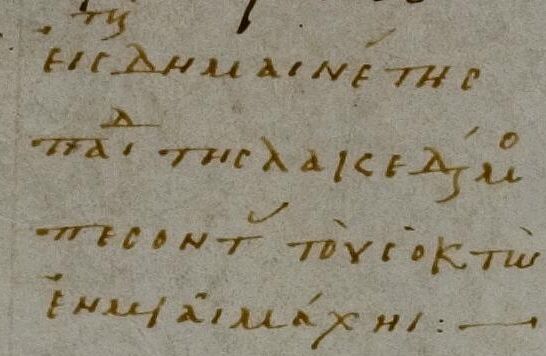 εις δημαινέτης
παιδ της λακεδαιμο
πεσοντ τοὺς ὀκτὼ
ἐν μιᾶι μάχηι :—